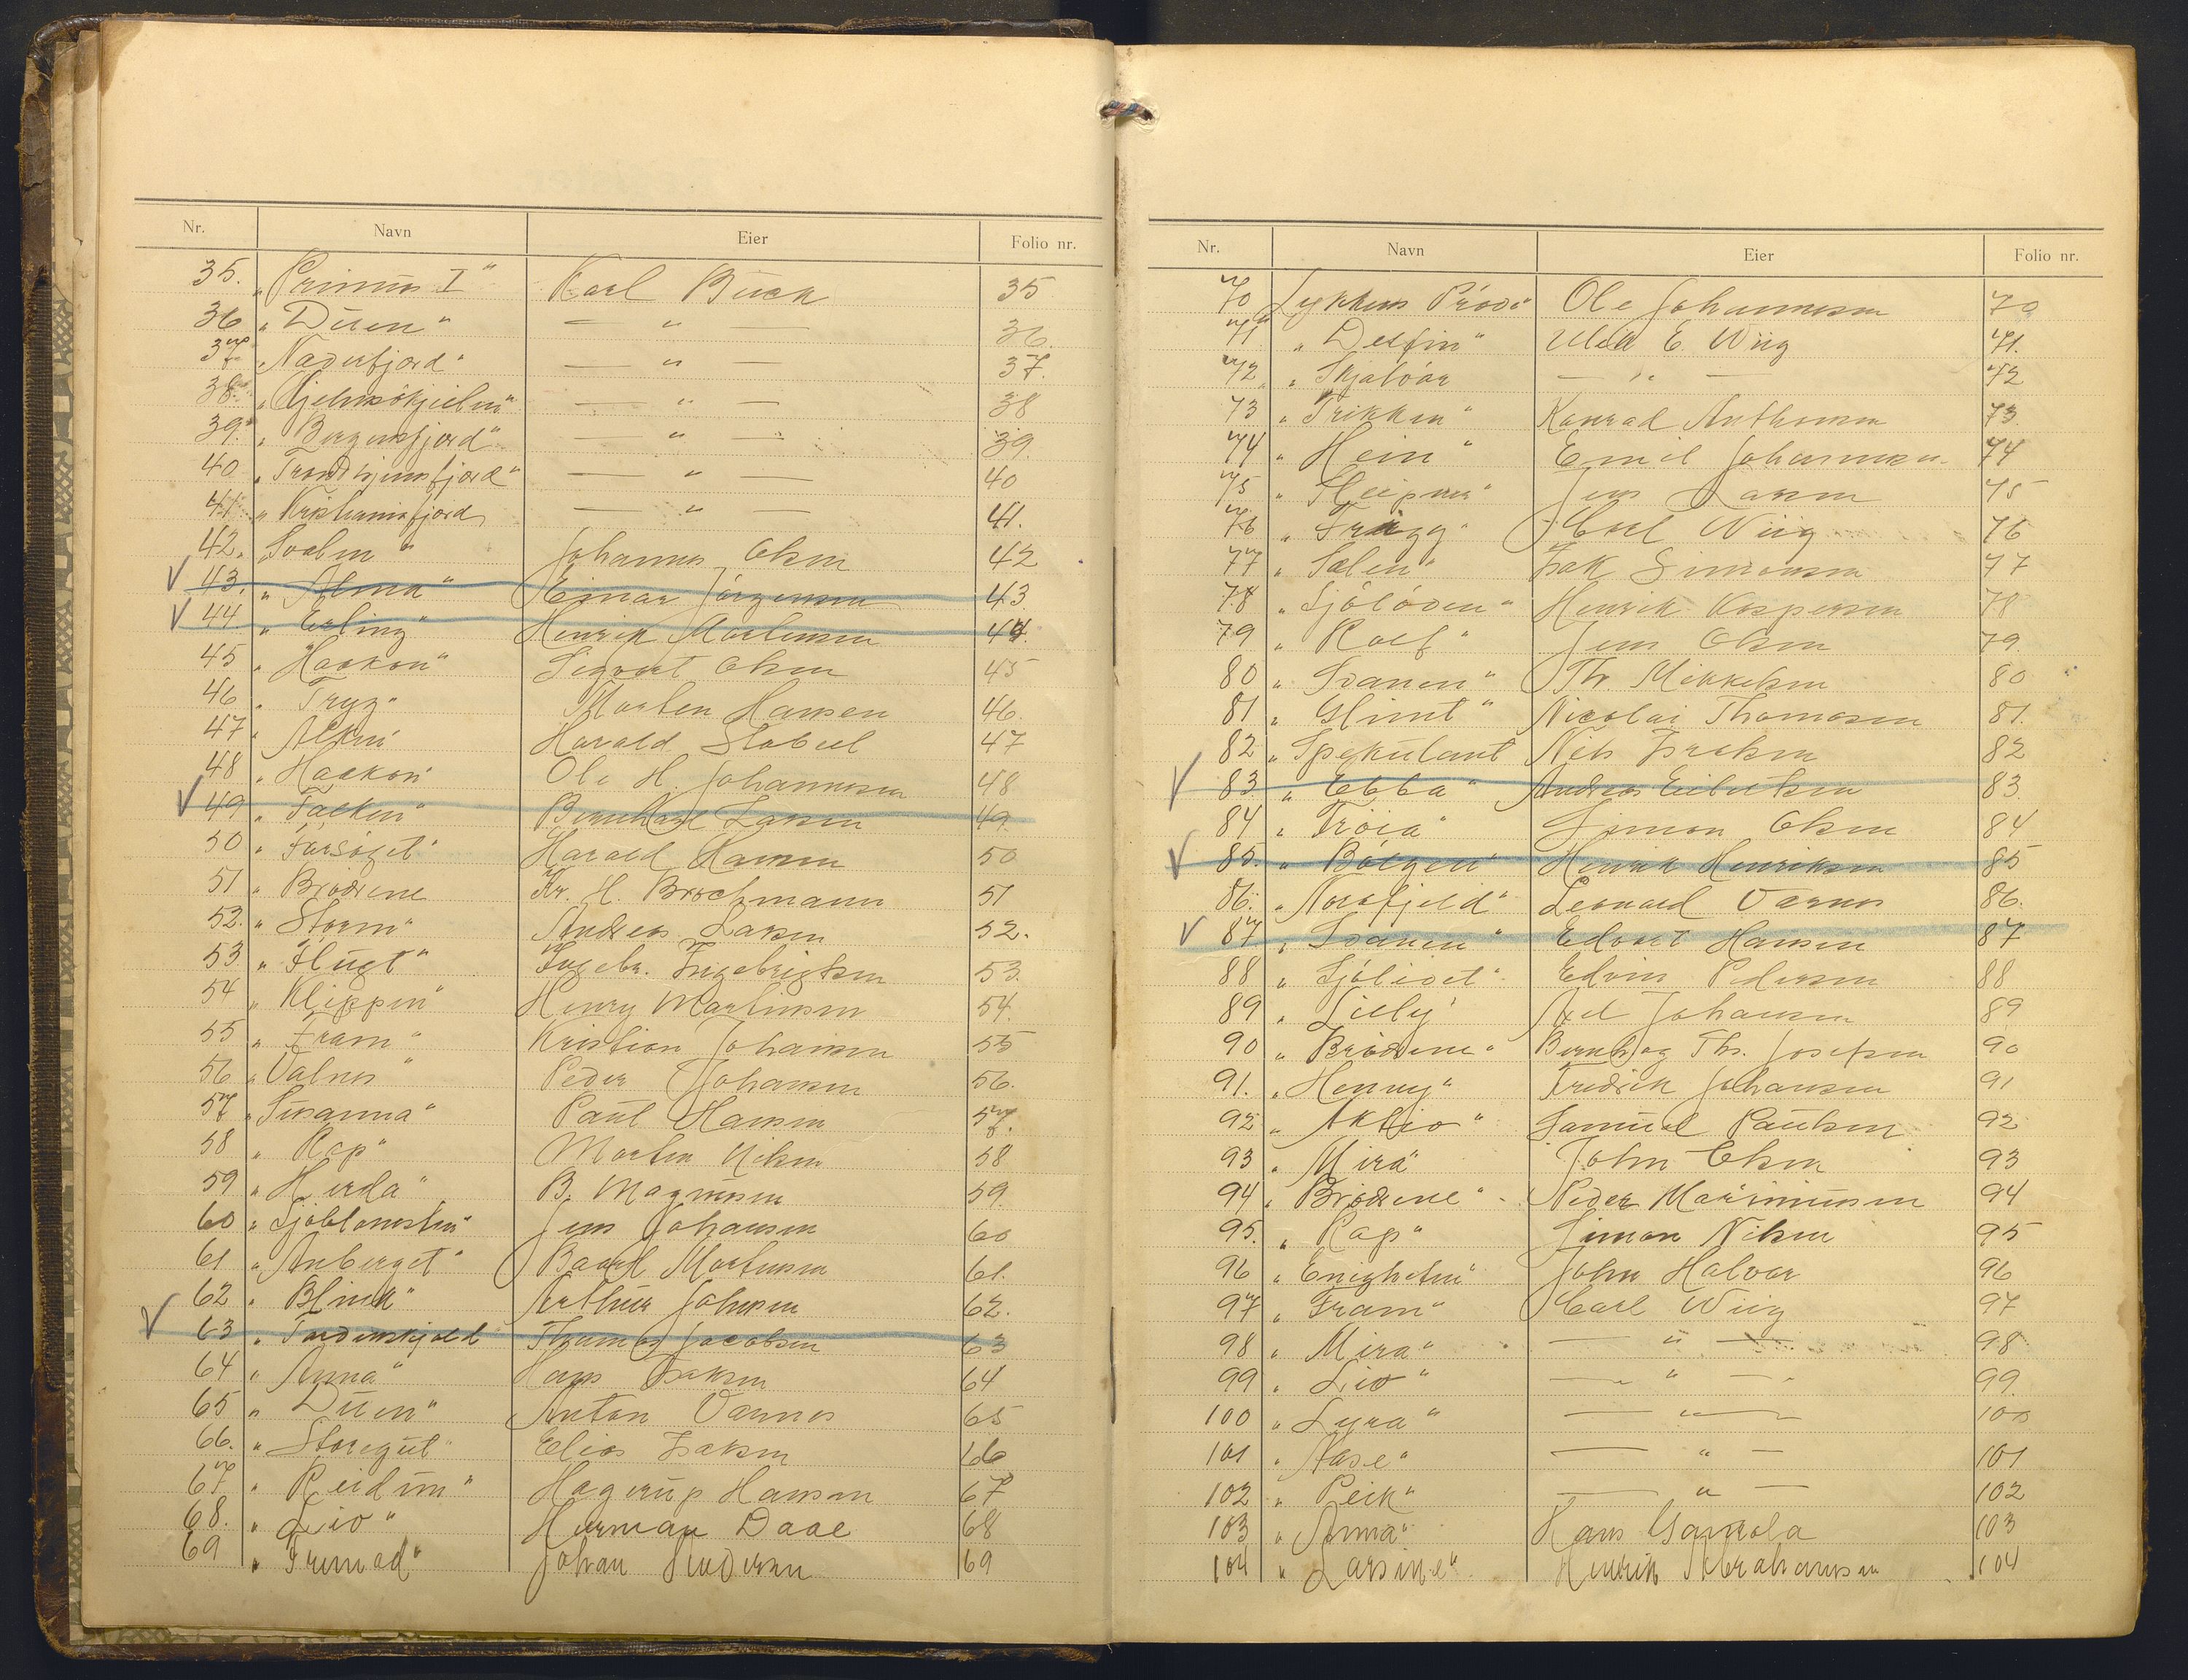 Nr. Navn Eier Folio nr.
35. „Primus I“ Karl Buck 35
36 „Duen“ — “ — 36.
37 „Naderfjord“ — “ 37.
38 „Hjelmsökjielen“ — “ — 38
39. „Bergensfjord“ — “ — 39.
40 „Trondhjemsfjord“ — “ — 40
41 „Kristianiafjord — “ — 41.
42. „Svalen“ Johannes Olsen 42
V 43. „Alma“ Einar Jörgensen 43
V 44. „Erling“ Henrik Martinsen 44.
45 „Haakon“ Sigvart Olsen 45
46 „Tryg“ Morten Hansen 46.
47 „Alken“ Harald Stabell 47
48 „Haakon“ Ole H. Johannesen 48
V 49 „Falken“ Bernhard Larsen 49.
50 „Forsöget“ Harald Hansen 50
51 „Brödrene Kr. H. Brochmann 51
52. „Storm“ Andreas Larsen 52.
53 „Flugt“ Ingebr. Ingebrigtsen 53.
54 „Klippen“ Henry Martinsen 54.
55 „Fram“ Kristian Johansen 55
56 „Valnes“ Peder Johansen 56.
57 „Susanna“ Paul Hansen 57.
58 „Rap“ Morten Nilsen 58
59 „Herda“ B. Magnusen 59.
60 „Sjöblomsten“ Jens Johansen 60
61 „Anberget“ Baard Mortensen 61.
62 „Blink“ Arthur Johnsen 62.
V 63 „Tordenskjold Thomas Jacobsen 63
64 „Anna“ Hans Isaksen 64
65 „Duen“ Anton Varnes 65
66. „Storegut“ Elias Isaksen 66
67 „Reidun“ Hagerup Hansen 67
68. „Liv“ Herman Daae 68
69 „Fremad“ Johan Andersen 69
Nr. Navn Eier Folio nr.
70 Lykkens Pröve“ Ole Johannesen 70
71 „Delfin“ E. Wiig 71.
72 „Skjalvar — “ — 72
73 „Trikken“ Konrad Anthonsen 73.
74 „Hein“ Emil Johannesen 74
75 „Sleipner“ Jens Larsen 75
76 „Trygg“ Carl Wiig 76
77 „Selen“ Isak Simonsen 77
78 „Sjölöven“ Henrik Kaspersen 78
79 „Rolf“ Jens Olsen 79.
80 „Svanen“ Th. Mikkelsen 80
81 „Glimt“ Nicolai Thomasen 81.
82 „Spekulant Nils Isaksen 82
V 83 „Ebba“ Andreas Eilertsen 83.
84 „Troia“ Simon Olsen 84
V 85. „Bölgen“ Henrik Henriksen 85
86. „Norafjeld“ Leonard Varnes 86.
V 87 „Svanen“ Edvart Hansen 87
88 „Sjölivet“ Edvin Pedersen 88
89 „Lilly“ Axel Johansen 89
90 „Brödrene“ Bernh. og Ths. Josefsen 90
91. „Henny“ Fredrik Johansen 91
92 „Aktiv“ Samuel Paulsen 92
93 „Mira“ John Olsen 93
94 „Brödrene“ Peder Marinusen 94
95. „Rap“ Simon Nilsen 95
96 „Enigheten“ John Halvar 96
97 „Fram“ Carl Wiig 97
98 „Mira“ — “ — 98
99 „Liv“ — “ — 99.
100 „Lyra“ — “ — 100
101 „Aase“ — “ — 101
102 „Peik“ — “ — 102
103 „Anna“ Hans Gamola 103
104 „Larsine“ Henrik Abrahamsen 104